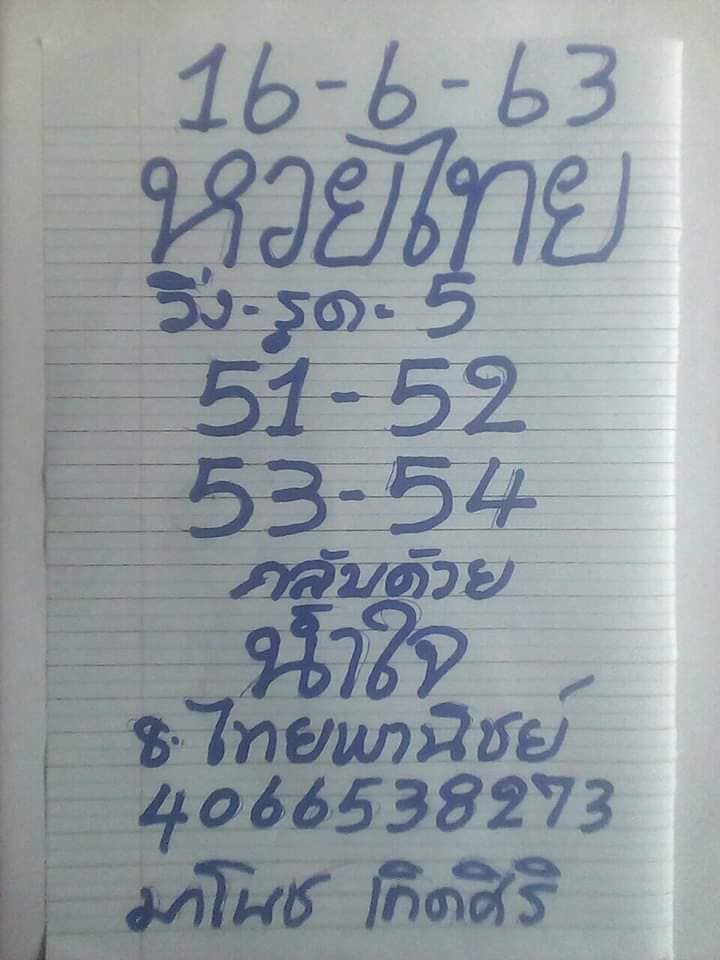 16-6-63
หวยไทย
วิ่ง-รูด-5
51-52
53-54
กลับด้วย
น้ำใจ
ธ.ไทยพานิชย์
4066538273
มาโนช เกิดศิริ